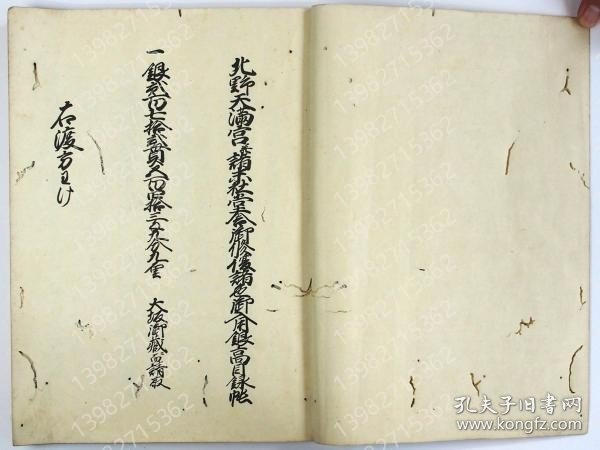 北野天満宮并諸末社堂舎御修復諸色御入用銀高目録帳
一銀弐百七拾弐貫八百四拾三匁九分九厘 大坂御蔵ゟ請取
右渡方わけ
13982715362
孔夫子旧书网
www.kongfz.com